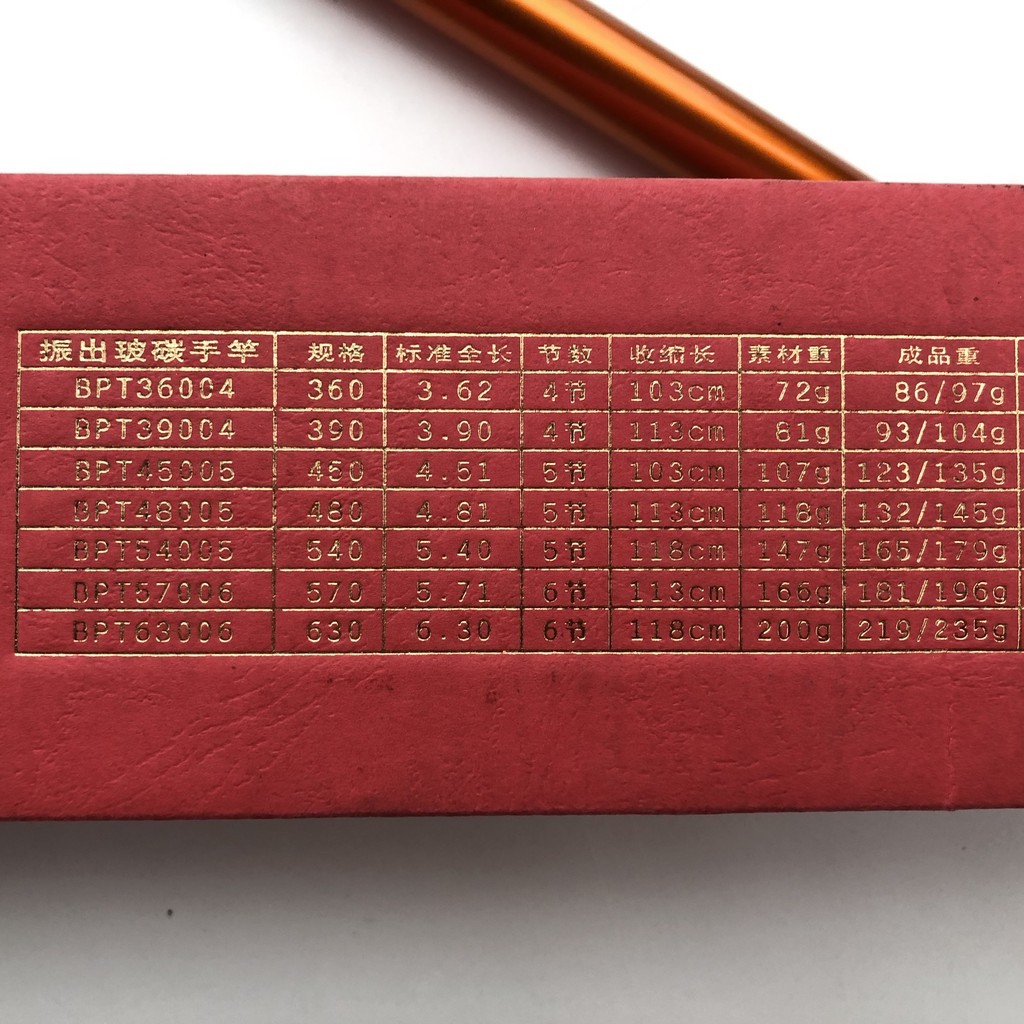 振出玻碳手竿 规格 标准全长 节数 收缩长 素材重 成品重
BPT36004 360 3.62 4节 103cm 72g 86/97g
BPT39004 390 3.90 4节 113cm 81g 93/104g
BPT45005 450 4.51 5节 103cm 107g 123/135g
BPT48005 480 4.81 5节 113cm 118g 132/145g
BPT54005 540 5.40 5节 118cm 147g 165/179g
BPT57006 570 5.71 6节 113cm 166g 181/196g
BPT63006 630 6.30 6节 118cm 200g 219/235g